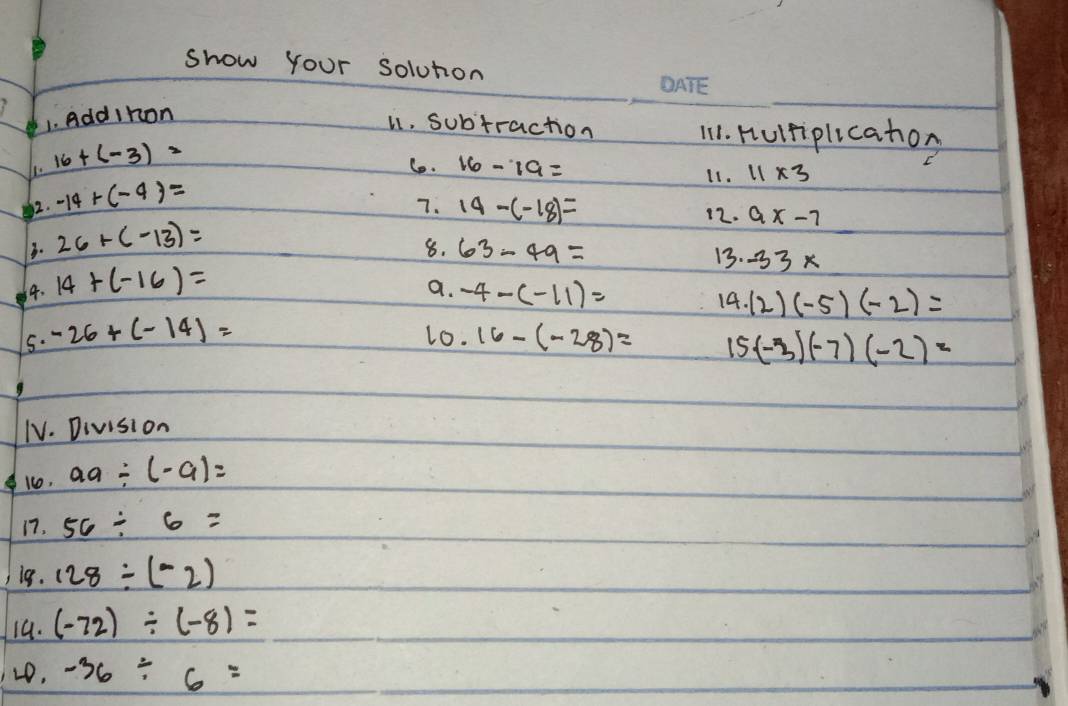 Show Your Solution
DATE
I. Addition
1. 16 + (-3) =
2. -14 + (-4) =
3. 26 + (-13) =
4. 14 + (-16) =
5. -26 + (-14) =
II. Subtraction
6. 16 - 19 =
7. 14 - (-18) =
8. 63 - 49 =
9. -4 - (-11) =
10. 16 - (-28) =
III. Multiplication
11. 11 x 3
12. 9 x -7
13. -33 x
14. (2) (-5) (-2) =
15. (-3) (-7) (-2) =
IV. Division
16. 99 ÷ (-9) =
17. 56 ÷ 6 =
18. 128 ÷ (-2)
19. (-72) ÷ (-8) =
20. -36 ÷ 6 =